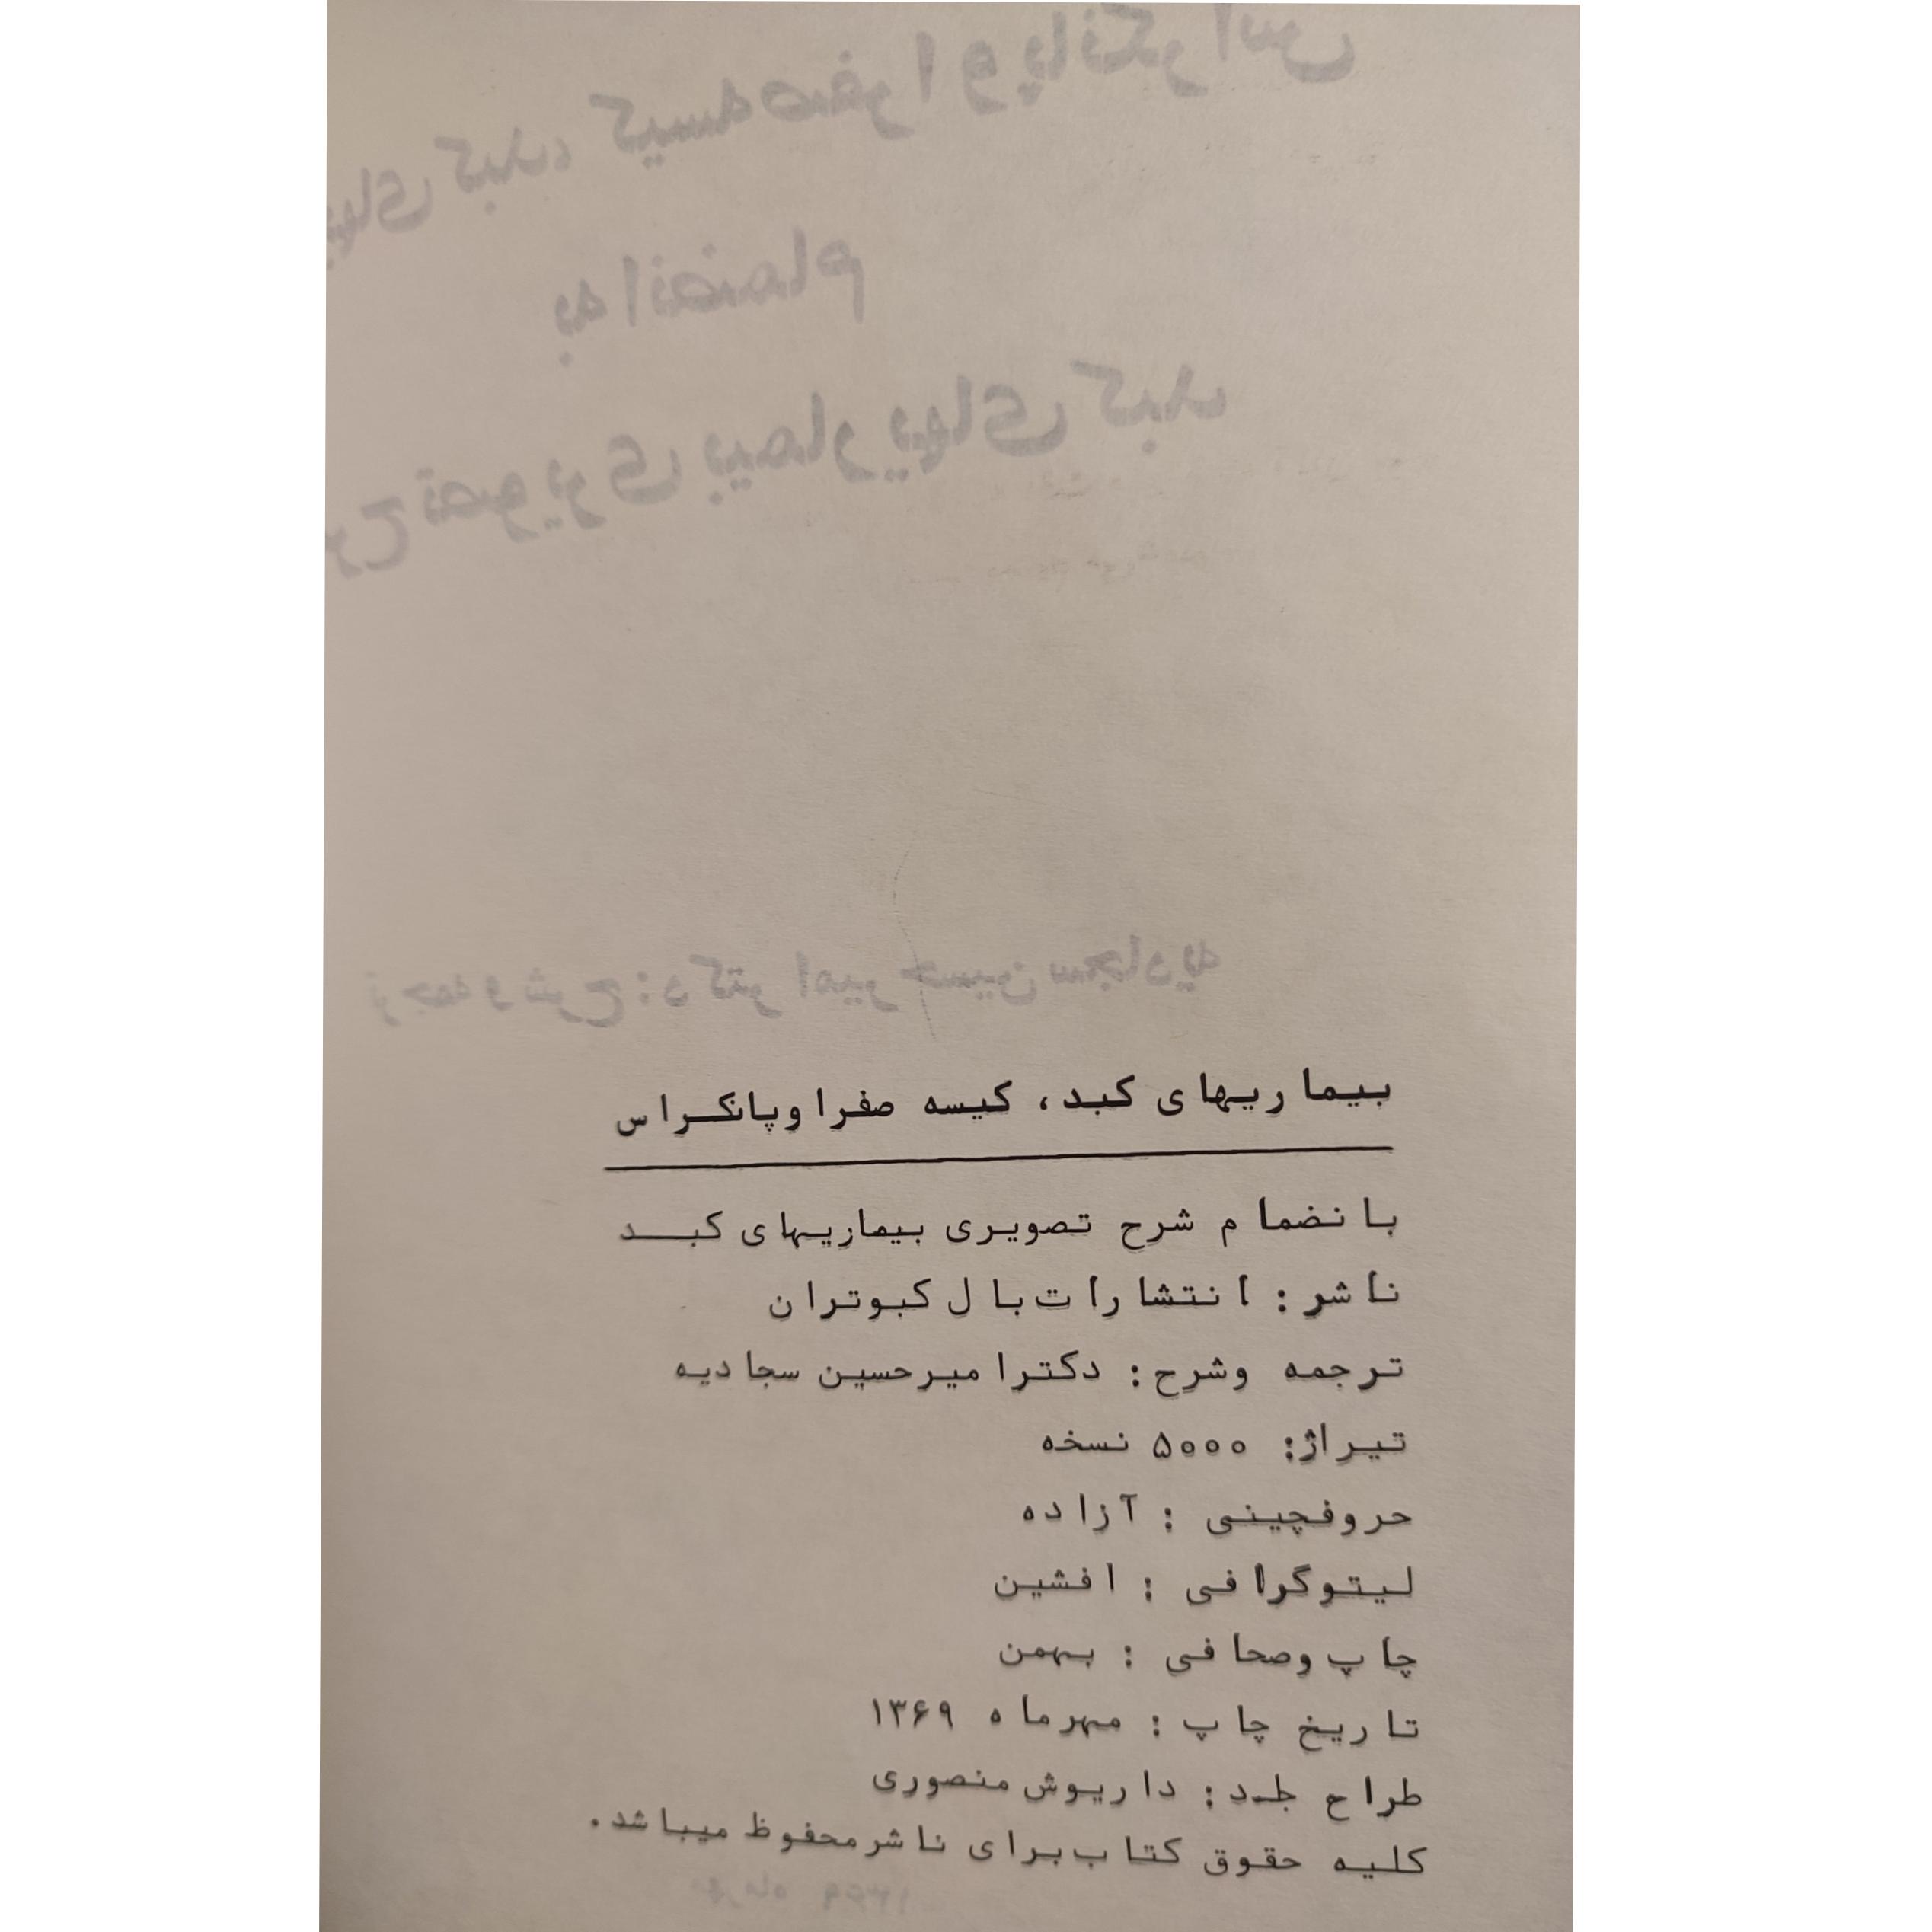 بیماریهای کبد، کیسه صفرا وپانکراس
بانضمام شرح تصویری بیماریهای کبد
ناشر: انتشارات بال کبوتران
ترجمه وشرح: دکترامیرحسین سجادیه
تیراژ: ۵۰۰۰ نسخه
حروفچینی : آزاده
لیتوگرافی : افشین
چاپ وصحافی : بهمن
تاریخ چاپ : مهرماه ۱۳۶۹
طراح جلد: داریوش منصوری
کلیه حقوق کتاب برای ناشرمحفوظ میباشد.